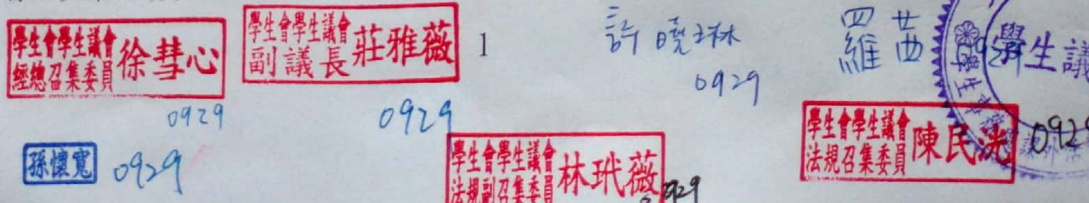 學生會學生議會
經總召集委員
徐彗心
0929
學生會學生議會
副議長
莊雅薇
0929
1
許曉琳
0929
羅茜
0929
學生議
孫懷寬
0929
學生會學生議會
法規副召集委員
林玳薇
0929
學生會學生議會
法規召集委員
陳民洸
0929